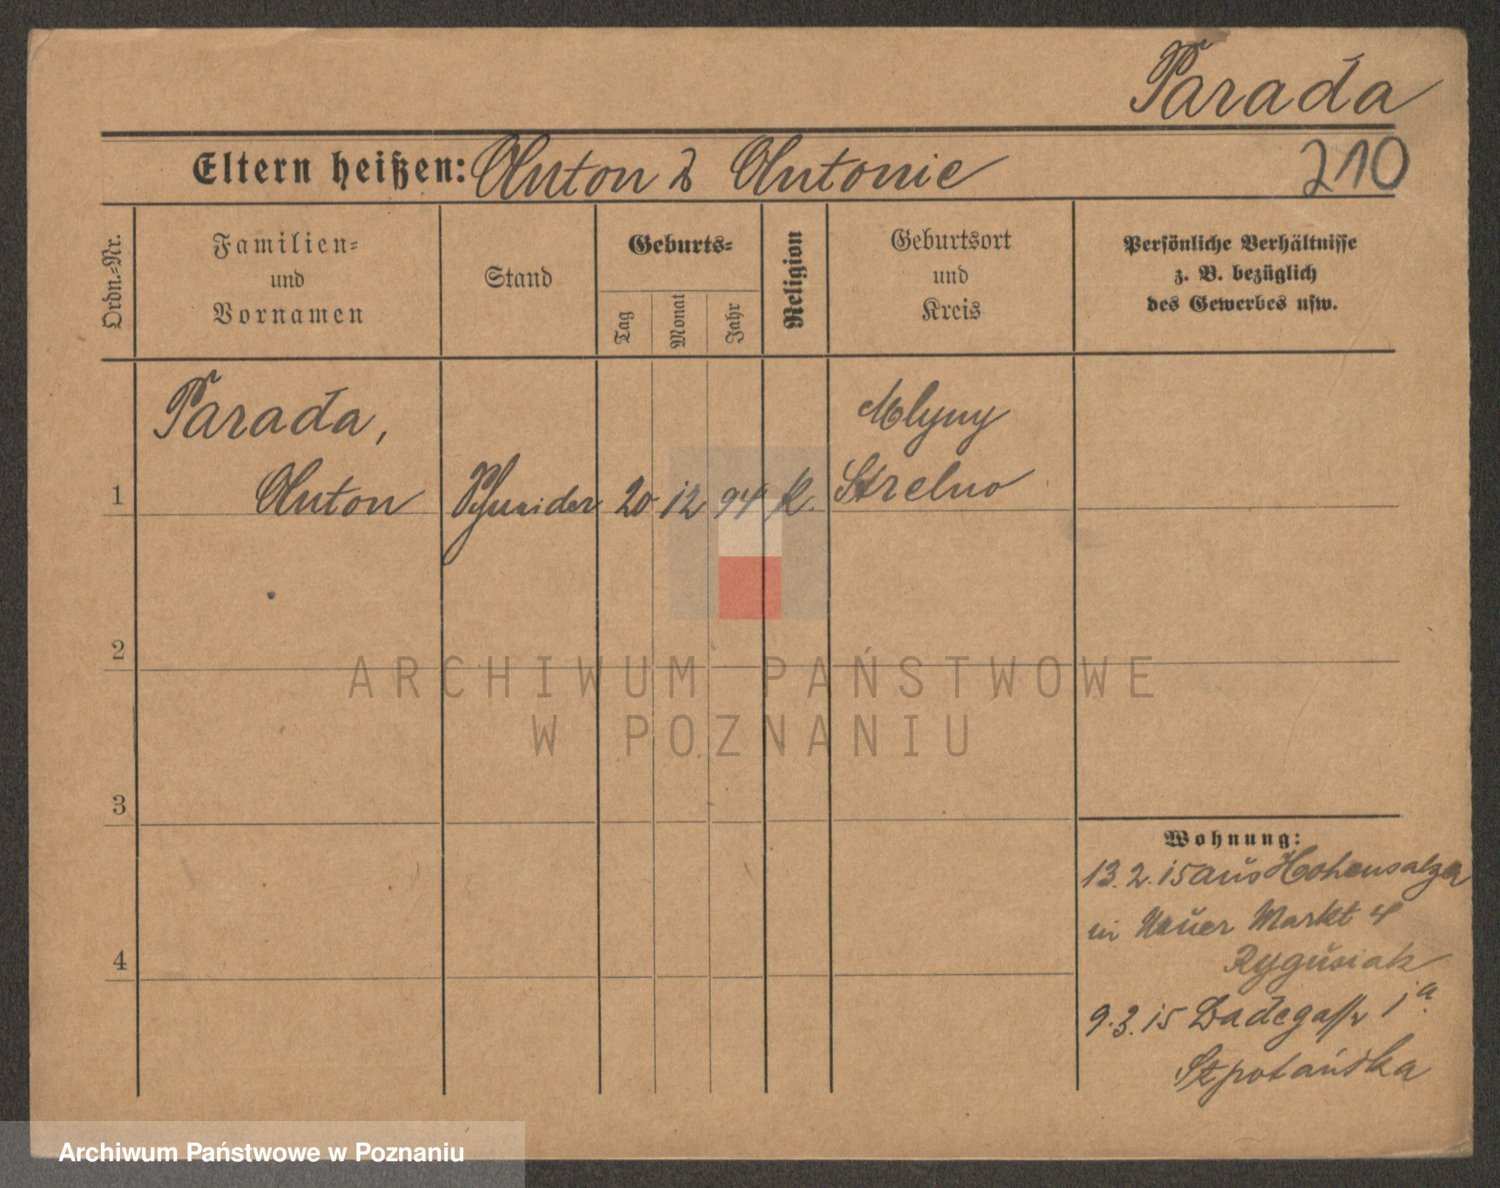 Parada
Eltern heißen: Anton & Antonie
210
Ordn.-Nr.
Familien-
und
Vornamen
Stand
Geburts-
Tag
Monat
Jahr
Religion
Geburtsort
und
Kreis
Persönliche Verhältnisse
z. B. bezüglich
des Gewerbes usw.
Parada,
Mlyny
1 Anton Schneider 20 12 94 K. Strelno
2
ARCHIWUM PAŃSTWOWE
W POZNANIU
3
Wohnung:
13.2.15 aus Hohensalza
in Neuer Markt 4
Rygusiak
4
9.3.15 Badegasse 1a.
Szpotańska
Archiwum Państwowe w Poznaniu